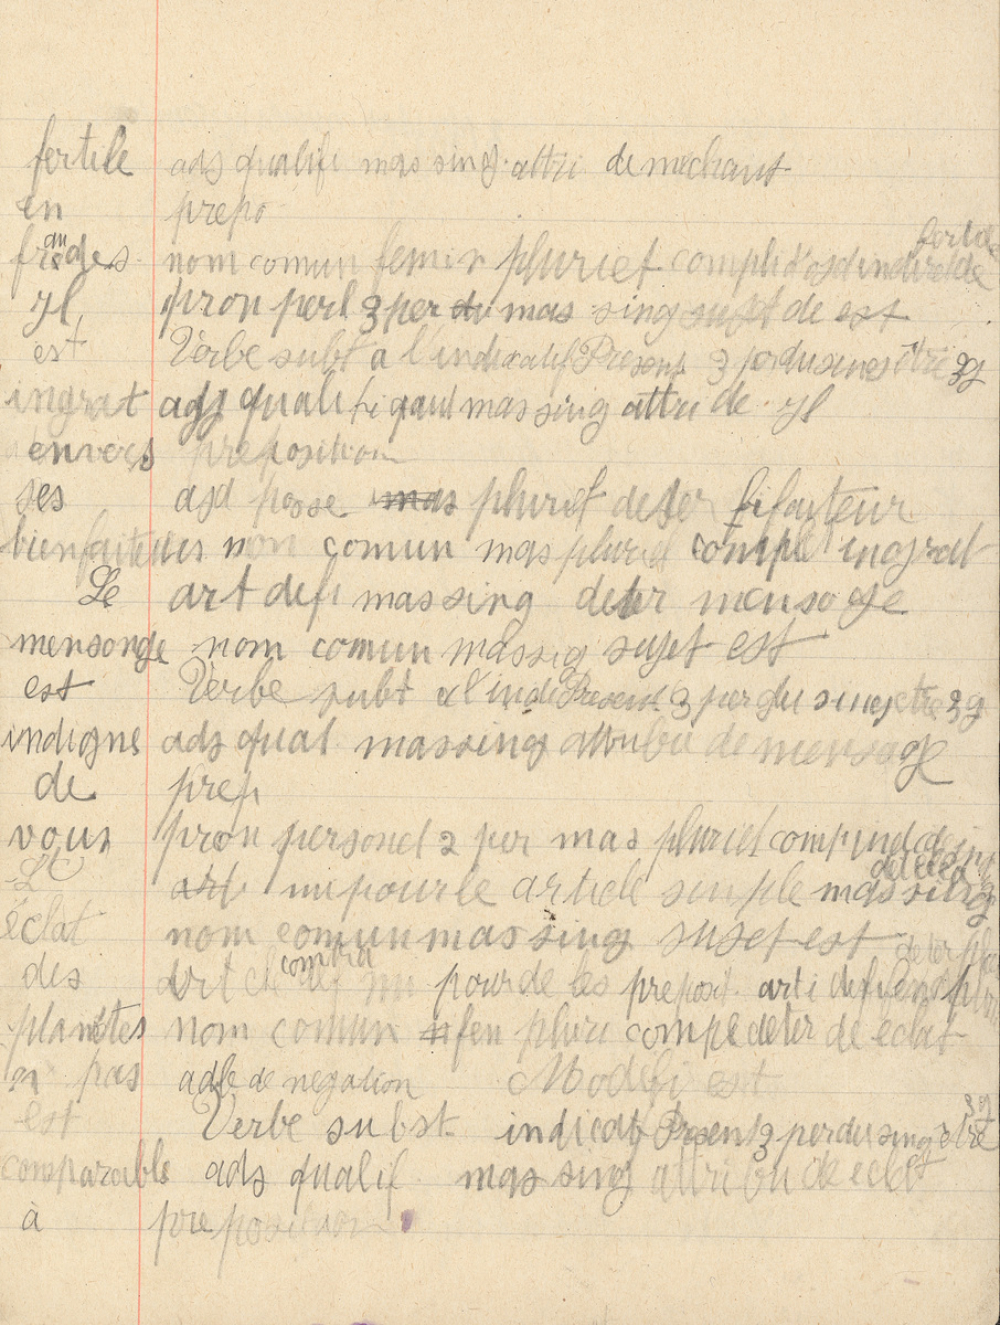 fertile adj qualifi mas sing. attri de mechant
en prépo
fraudes nom comun femin pluriel compli d'obd indirect de fertile
yl pron perl 3 per du mas sing sujet de est
est Verbe subt à l'indicatif Present 3 per du sing être 3g
ingrat adj qualifi mas sing attri de yl
envers preposition
ses adj posse mas pluriel deter bifaiteur
bienfaiteurs nom comun mas pluriel comple ingrat
Le art defi mas sing deter mensoge
mensonge nom comun mas sig sujet est
est Verbe subt a l'indi Present 3 per du sing etre 3g
indigne adj qual mas sing attribu de mensoge
de prep
vous pron personel 2 per mas pluriel comp ind de ind
L' art mi pour le article simple mas sing deter éclat
éclat nom comun mas sing sujet est
des art contra mi pour de les preposit. arti defi fem plu deter pla
planètes nom comun fen pluri comple deter de éclat
n pas adb de negation Modifi est
est Verbe subst. indicatif Present 3 per du sing être 3g
comparable adj qualif mas sing attribu de eclat
à preposition